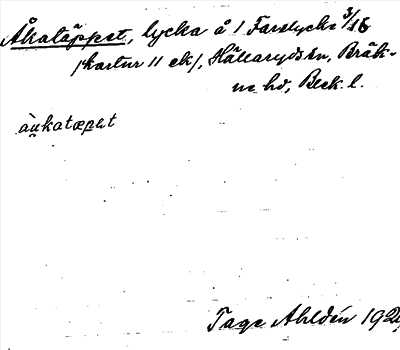 Åkatäppet, lycka å 1 Farslycke 3/16
/kartur 11 ek/, Hällaryds sn, Bräk-
ne hd, Blek. l.
àu̯katæpət
Tage Ahldén 192